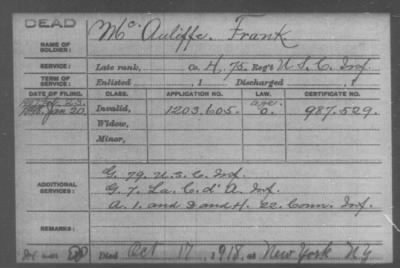 DEAD
NAME OF SOLDIER: Mc Auliffe, Frank
SERVICE: Late rank, Co. H, 75 Reg't U.S.C. Inf.
TERM OF SERVICE: Enlisted 1 Discharged 1
DATE OF FILING. CLASS. APPLICATION NO. LAW. CERTIFICATE NO.
1898, Jan 20 Invalid, 1203.605. 987.529.
Widow,
Minor,
ADDITIONAL SERVICES: G. 79. U.S.C. Inf.
G. 7. La. C. d' A. Inf.
A. 1. and D and H. 22. Conn. Inf.
REMARKS:
Died Oct 17, 1918, at New York N.Y.